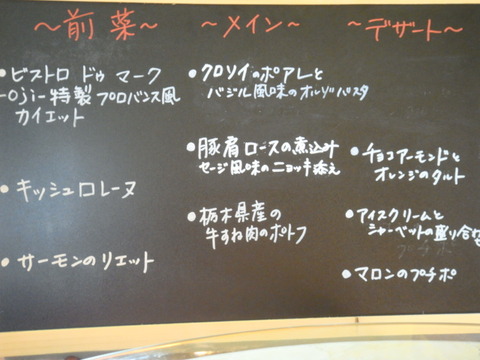 ～前菜～
・ビストロ ドゥ マーク
-Oji-特製 プロバンス風
カイエット
・キッシュロレーヌ
・サーモンのリエット
～メイン～
・クロソイのポアレと
バジル風味のオルゾパスタ
・豚肩ロースの煮込み
セージ風味のニョッキ添え
・栃木県産の
牛すね肉のポトフ
～デザート～
・チョコアーモンドと
オレンジのタルト
・アイスクリームと
シャーベットの盛り合せ
・マロンのプチポ